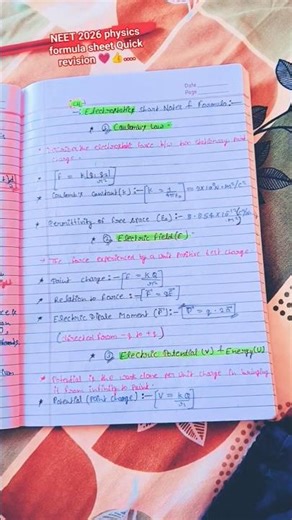 NEET 2026 physics
formula sheet Quick
revision 💗👍
Date
Page
Electrostatics Short Notes & Formula:-
① Coulomb's Law -
electrostatic force b/w two stationary point
charge.
F = k|q₁q₂|/r²
Coulomb's constant(k):- k = 1/4πε₀ = 9×10⁹ N·m²/C²
Permittivity of free space (ε₀):- 8.854×10⁻¹²
② Electric Field(E)
The force experienced by a unit positive test charge
Point charge:- E = kQ/r²
Relation to Force:- F = qE
Electric Dipole Moment (P):- P = q·2a
(direction from -q to +q)
③ Electric Potential (V) & Energy(U)
Potential is the work done per unit charge in bringing
it from infinity to point.
Potential (Point charge):- V = kQ/r